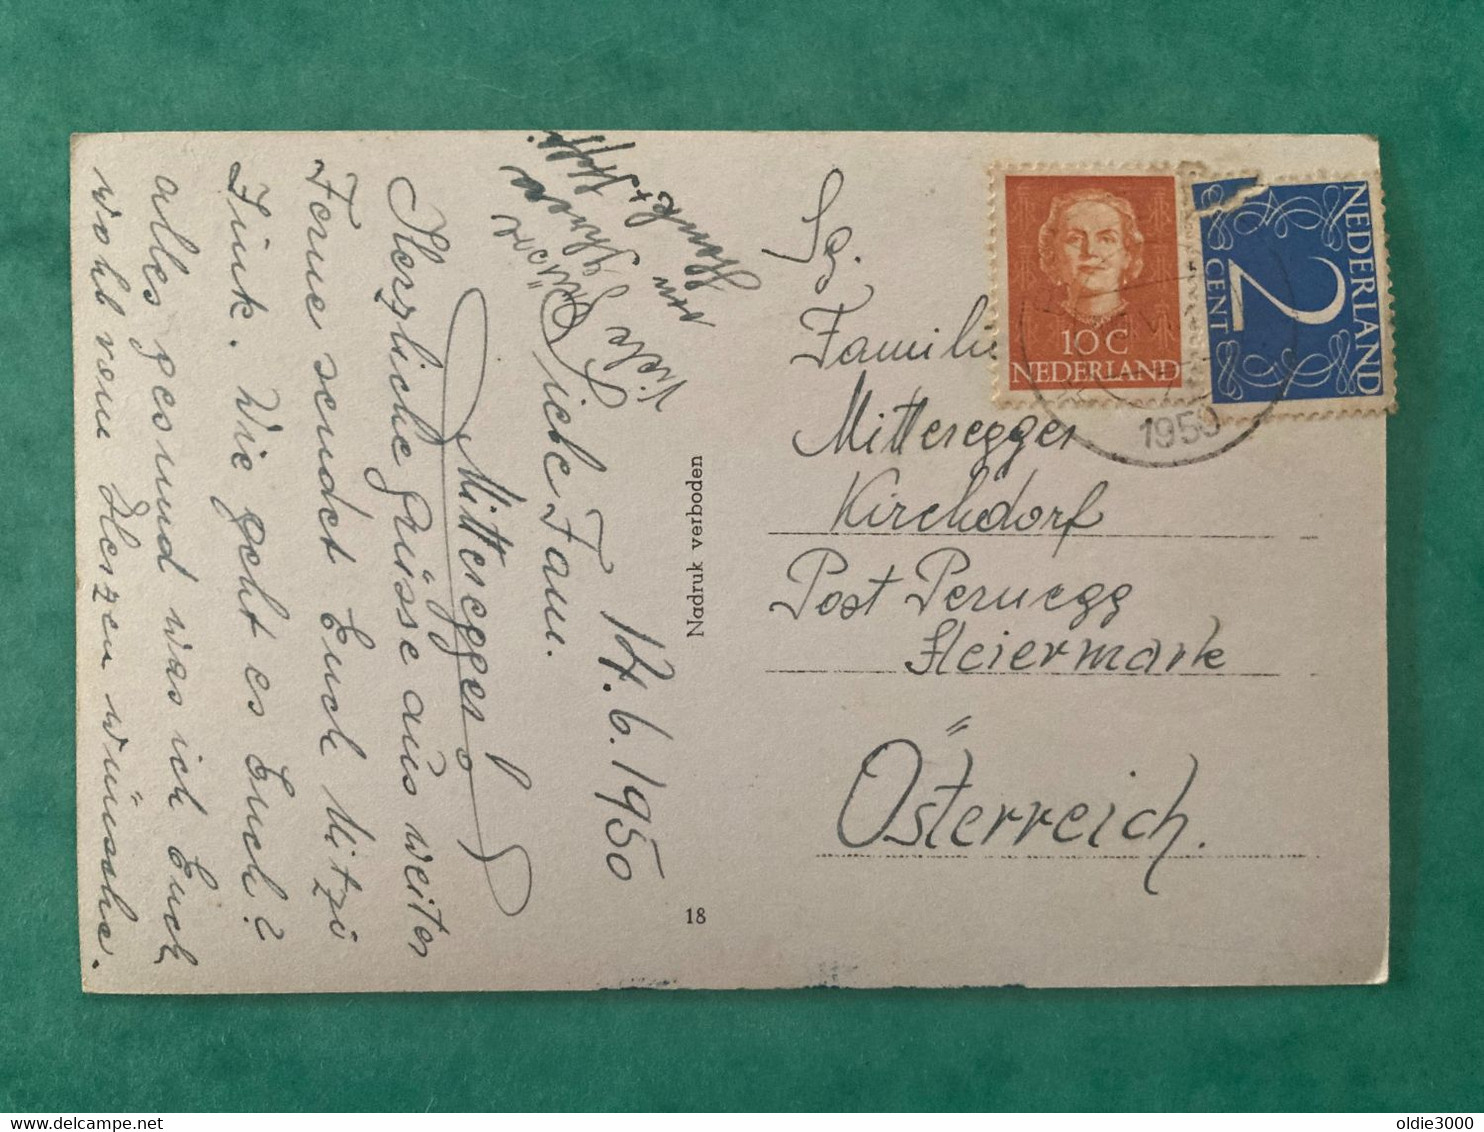 14.6.1950
Liebe Fam.
Mitteregger!
Herzliche Grüsse aus weiter
Ferne sendet Euch Mitzi
Fink. Wie geht es Euch?
alles gesund was ich Euch
wohl vom Herzen wünsche.
Viele Grüsse
von Ihrer
Nadruk verboden
18
Familie
Mitteregger
Kirchdorf
Post Pernegg
Steiermark
Österreich.
10 C
NEDERLAND
NEDERLAND
2
CENT
1950
oldie3000